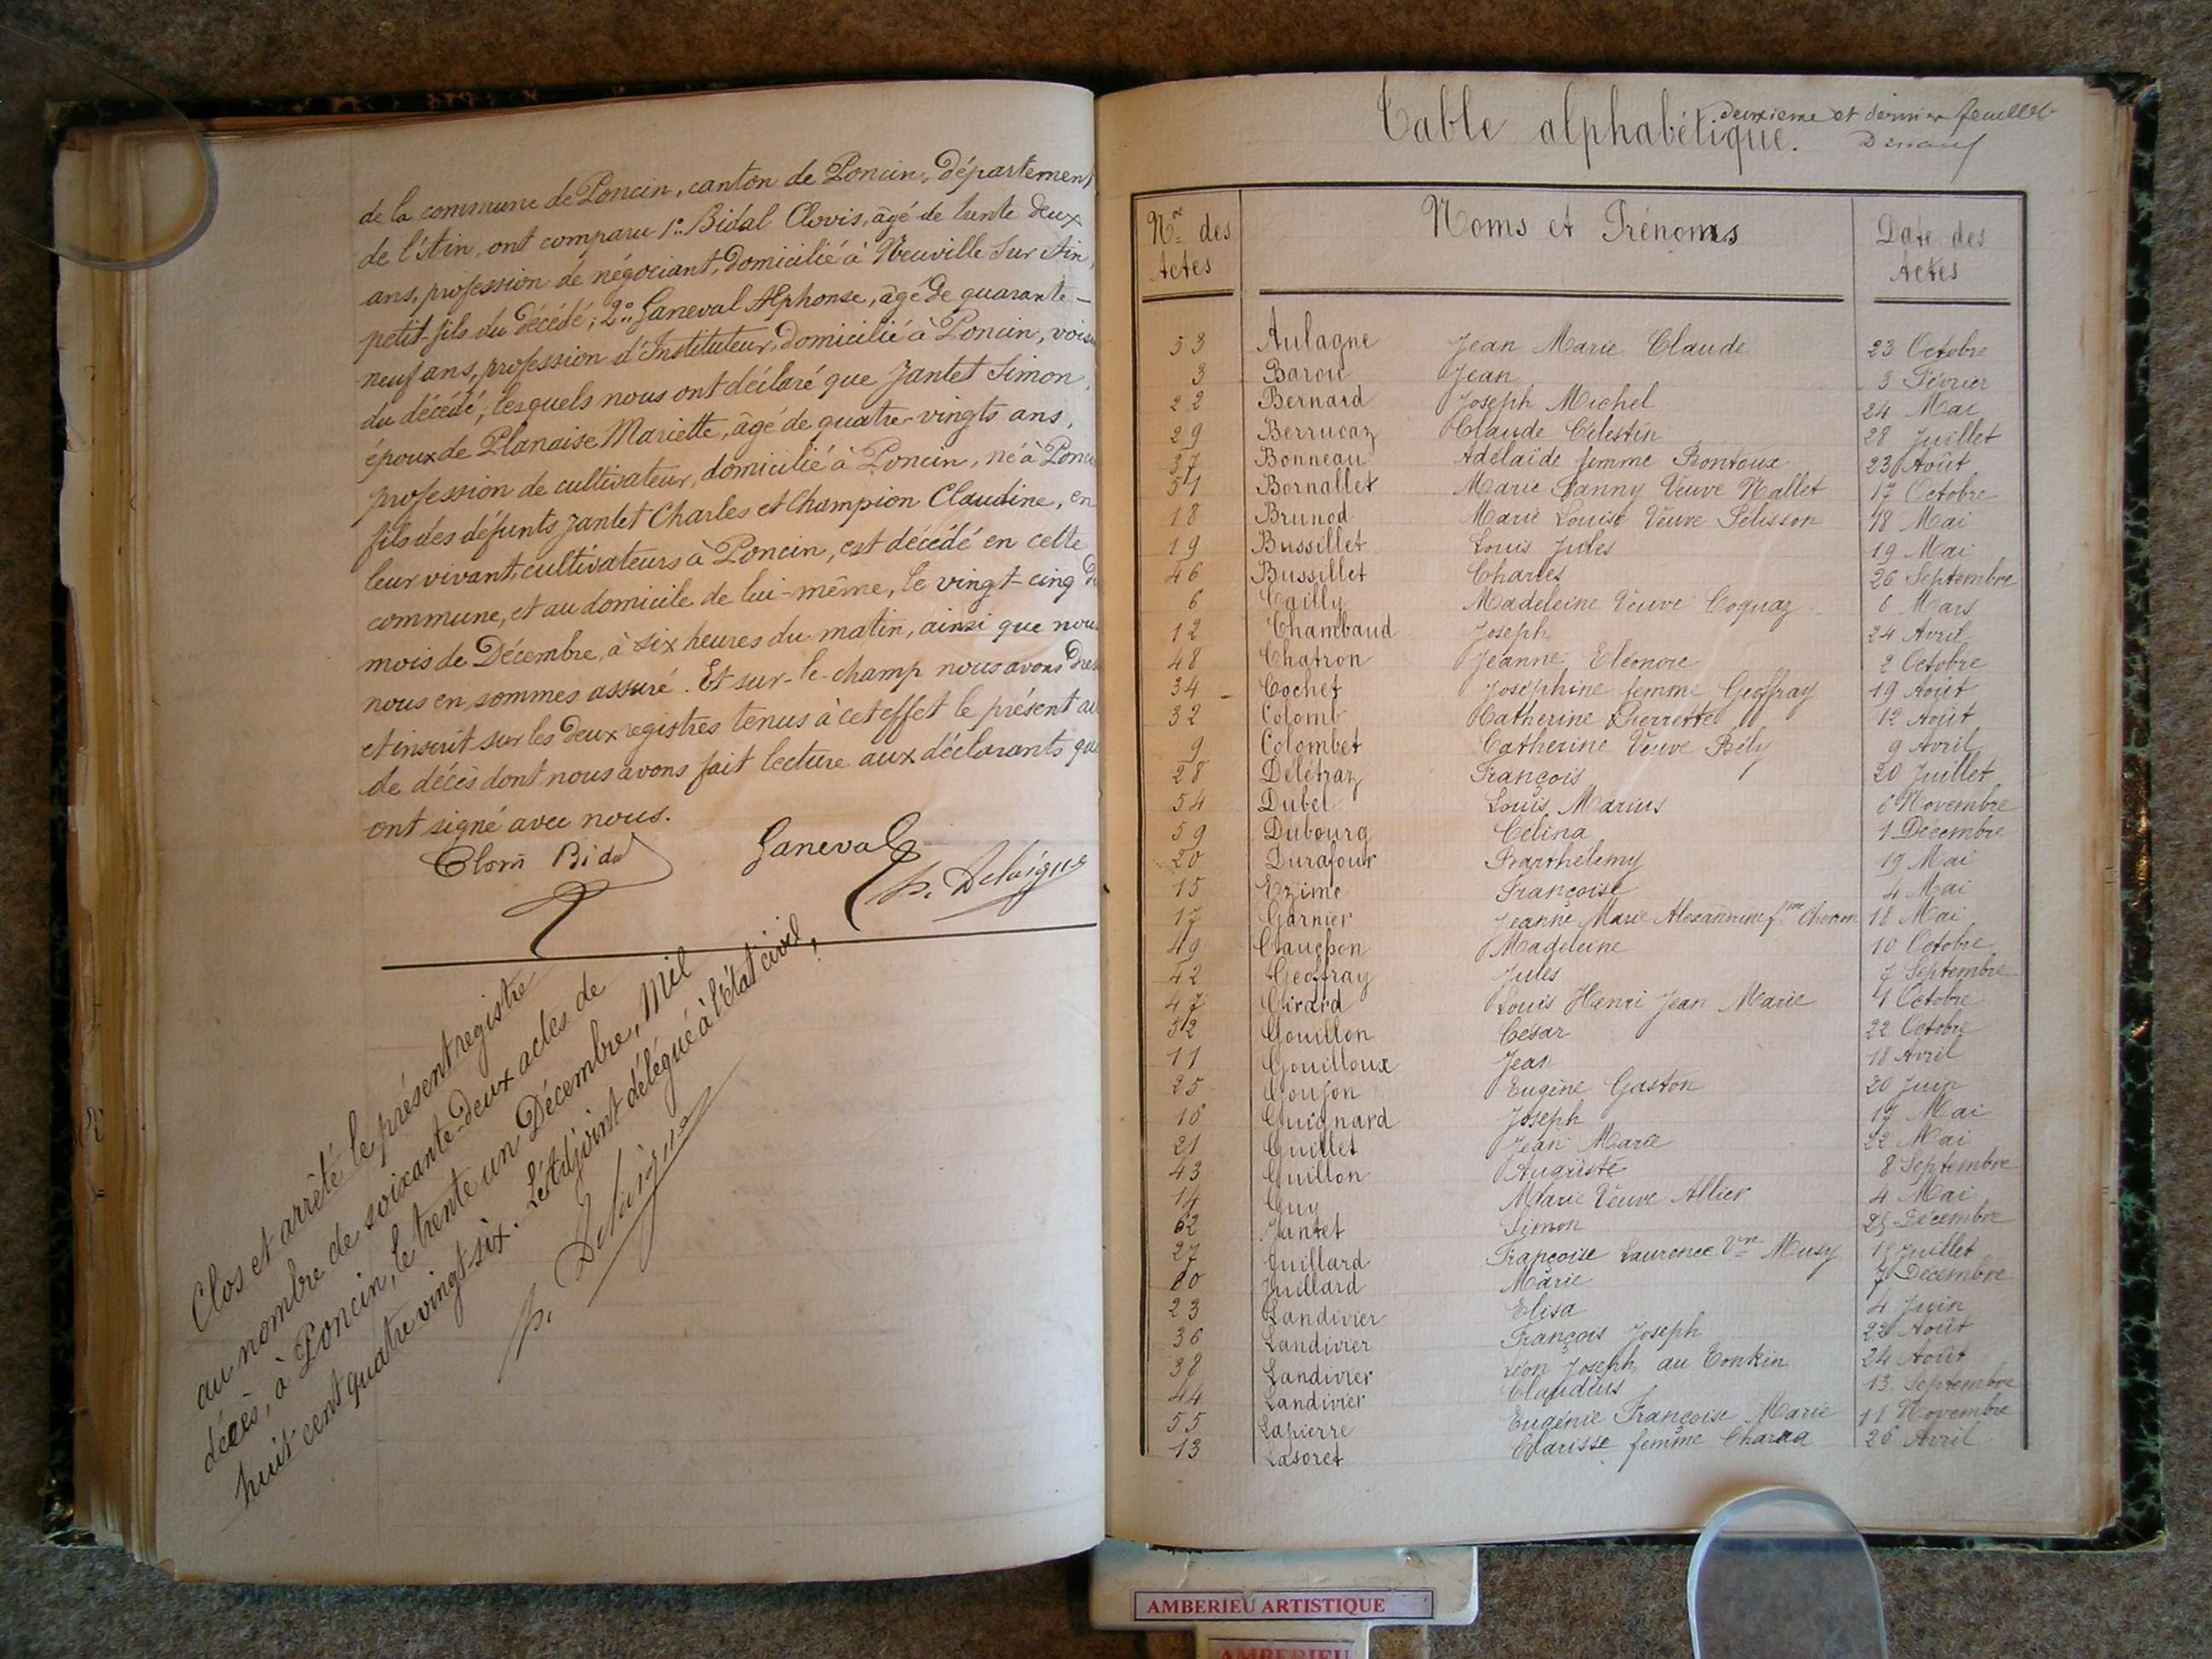 de la commune de Poncin, canton de Poncin, département
de l'Ain, ont comparu 1º. Bidal Clovis, âgé de trente deux
ans, profession de négociant, domicilié à Neuville sur Ain,
petit-fils du décédé; 2º. Ganeval Alphonse, âgé de quarante-
neuf ans, profession d'Instituteur, domicilié à Poncin, voisin
du décédé; lesquels nous ont déclaré que Jantet Simon,
époux de Planaise Mariette, âgé de quatre-vingts ans,
profession de cultivateur, domicilié à Poncin, né à Poncin
fils des défunts Jantet Charles et Champion Claudine, en
leur vivant, cultivateurs à Poncin, est décédé en cette
commune, et au domicile de lui-même, le vingt-cinq du
mois de Décembre, à six heures du matin, ainsi que nous
nous en sommes assuré. Et sur-le-champ nous avons dres
et inscrit sur les deux registres tenus à cet effet le présent ac
de décès dont nous avons fait lecture aux déclarants qui
ont signé avec nous.
Clovis Bidal
Ganeval
Clos et arrêté le présent registre
au nombre de soixante-deux actes de
décès, à Poncin, le trente un Décembre, Mil
huit cent quatre vingt six. L'Adjoint délégué à l'état civil,
deuxième et dernier feuillet
Table alphabétique.
Nos des Actes Noms et Prénoms Date des Actes
53 Aulagne Jean Marie Claude 23 Octobre
3 Barou Jean 3 Février
22 Bernard Joseph Michel 24 Mai
29 Berrucaz Claude Célestin 28 Juillet
37 Bonneau Adélaïde femme Bontoux 23 Août
51 Bornallet Marie Fanny Veuve Nallet 17 Octobre
18 Brunod Marie Louise Veuve Pélisson 18 Mai
19 Bussillet Louis Jules 19 Mai
46 Bussillet Charles 26 Septembre
6 Cailly Madeleine Veuve Coquaz 6 Mars
12 Chambaud Joseph 24 Avril
48 Chatron Jeanne Eléonore 2 Octobre
34 - Cochet Joséphine femme Geoffray 19 Août
32 Colomb Catherine Pierrette 12 Août
9 Colombet Catherine Veuve Bély 9 Avril
28 Delétraz François 20 Juillet
54 Dubel Louis Marius 6 Novembre
59 Dubourg Celina 1 Décembre
20 Durafour Barthélemy 19 Mai
15 Ezime Françoise 4 Mai
17 Garnier Jeanne Marie Alexandrine fme 18 Mai
49 Gauchon Madeleine 10 Octobre
42 Geoffray Jules 7 Septembre
47 Girard Louis Henri Jean Marie 1 Octobre
52 Gouillon César 22 Octobre
11 Gouilloux Jean 18 Avril
25 Goujon Eugène Gaston 20 Juin
16 Guignard Joseph 17 Mai
21 Guillet Jean Marie 22 Mai
43 Guillon Auguste 8 Septembre
14 Guy Marie Veuve Allier 4 Mai
62 Jantet Simon 25 Décembre
27 Juillard Françoise Laurence Vve Musy Juillet
60 Juillard Marie 7 Décembre
23 Landivier Elisa 4 Juin
36 Landivier François Joseph 22 Août
38 Landivier Léon Joseph au Tonkin 24 Août
44 Landivier Claudius 13 Septembre
55 Lapierre Eugénie Françoise Marie 11 Novembre
13 Lasoret Clarisse femme 26 Avril
AMBERIEU ARTISTIQUE
AMBERIEU